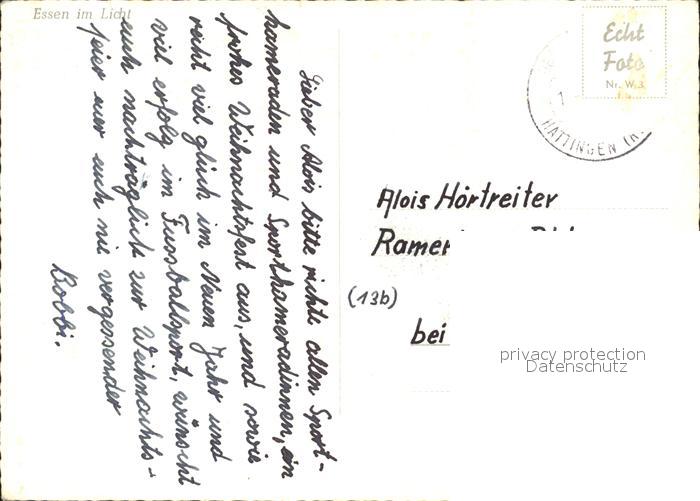 Essen im Licht
Lieber Alois bitte richte allen Sport-
kameraden und Sportkameradinnen, ein
frohes Weihnachtsfest aus, und sowie
recht viel glück im Neuen Jahr und
viel erfolg im Fussballsport, wünscht
euch nachträglich zur Weihnachts-
feier euer euch nie vergessender
Bobbi.
Echt
Foto
Nr. W.3
HATTINGEN (R
Alois Hörtreiter
Ramer
(13b)
bei
privacy protection
Datenschutz